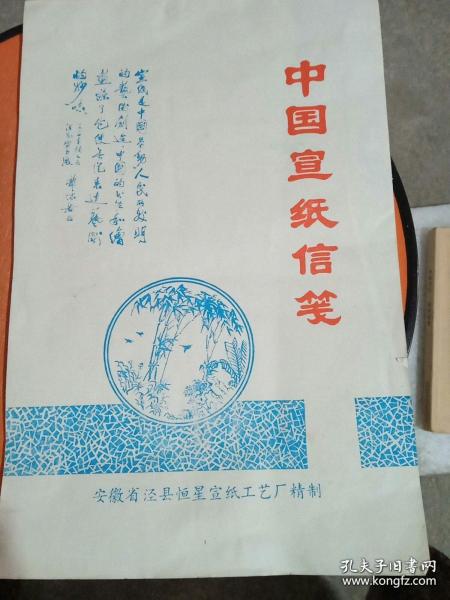 中国宣纸信笺
宣纸是中国劳动人民所发明
的艺术创造,中国的书法和绘
画离了它便无从表达艺术
的妙味
郭沫若
安徽省泾县恒星宣纸工艺厂精制
孔夫子旧书网
www.kongfz.com